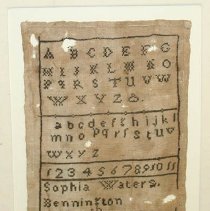 A B C D E F G
H I J K L M N O
P Q R S T U V W
W X Y Z &.
a b c d e f g h i j k l
m n o p q r s t u v
w x y z
1 2 3 4 5 6 7 8 9 10 11
Sophia Waters.
Bennington